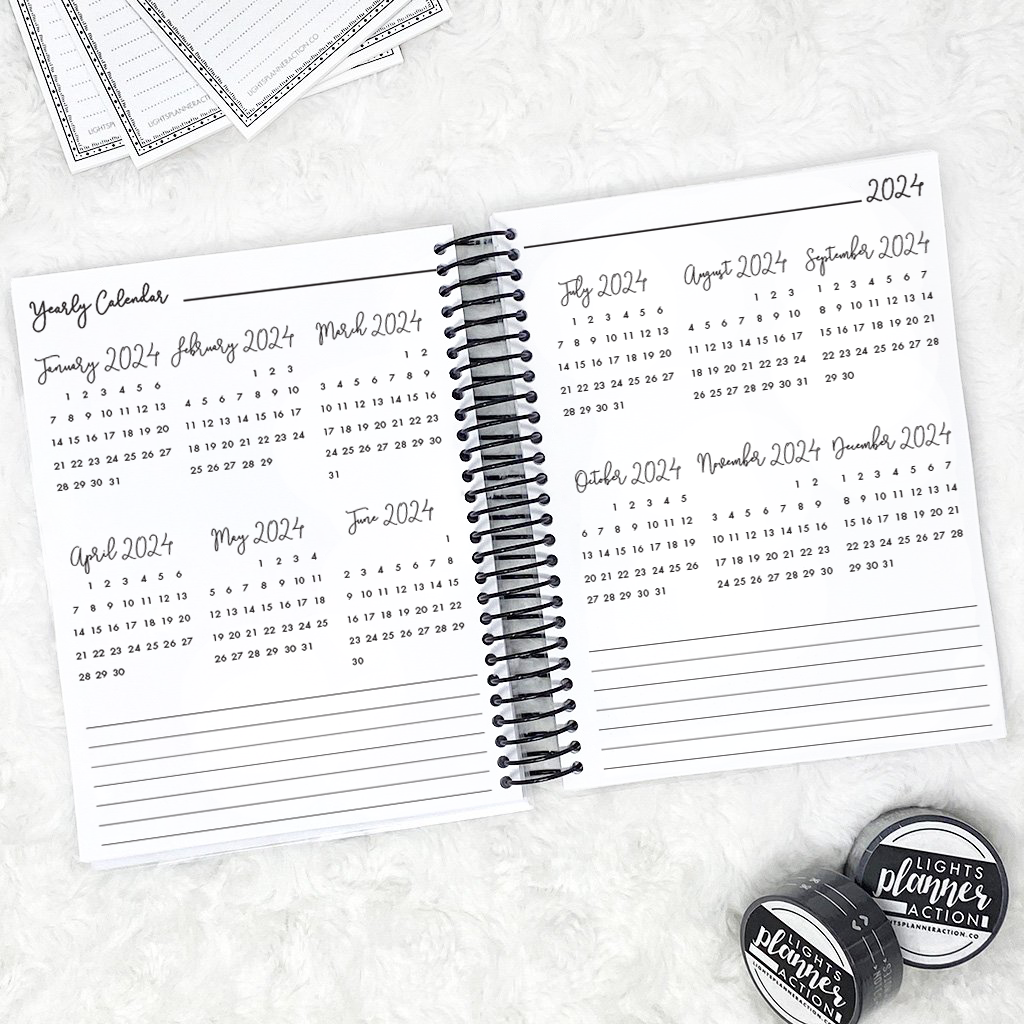 LIGHTSPL
LIGHTSPLANNERACT
LIGHTSPLANNERACTION.CO
Yearly Calendar
January 2024
1 2 3 4 5 6
7 8 9 10 11 12 13
14 15 16 17 18 19 20
21 22 23 24 25 26 27
28 29 30 31
February 2024
1 2 3
4 5 6 7 8 9 10
11 12 13 14 15 16 17
18 19 20 21 22 23 24
25 26 27 28 29
March 2024
1 2
3 4 5 6 7 8 9
10 11 12 13 14 15 16
17 18 19 20 21 22 23
24 25 26 27 28 29 30
31
April 2024
1 2 3 4 5 6
7 8 9 10 11 12 13
14 15 16 17 18 19 20
21 22 23 24 25 26 27
28 29 30
May 2024
1 2 3 4
5 6 7 8 9 10 11
12 13 14 15 16 17 18
19 20 21 22 23 24 25
26 27 28 29 30 31
June 2024
1
2 3 4 5 6 7 8
9 10 11 12 13 14 15
16 17 18 19 20 21 22
23 24 25 26 27 28 29
30
2024
July 2024
1 2 3 4 5 6
7 8 9 10 11 12 13
14 15 16 17 18 19 20
21 22 23 24 25 26 27
28 29 30 31
August 2024
1 2 3
4 5 6 7 8 9 10
11 12 13 14 15 16 17
18 19 20 21 22 23 24
25 26 27 28 29 30 31
September 2024
1 2 3 4 5 6 7
8 9 10 11 12 13 14
15 16 17 18 19 20 21
22 23 24 25 26 27 28
29 30
October 2024
1 2 3 4 5
6 7 8 9 10 11 12
13 14 15 16 17 18 19
20 21 22 23 24 25 26
27 28 29 30 31
November 2024
1 2
3 4 5 6 7 8 9
10 11 12 13 14 15 16
17 18 19 20 21 22 23
24 25 26 27 28 29 30
December 2024
1 2 3 4 5 6 7
8 9 10 11 12 13 14
15 16 17 18 19 20 21
22 23 24 25 26 27 28
29 30 31
LIGHTS
planner
ACTION
HTSPLANNERACTION.CO
LIGHTS
planner
ACTION
LIGHTSPLANNERACTION.CO